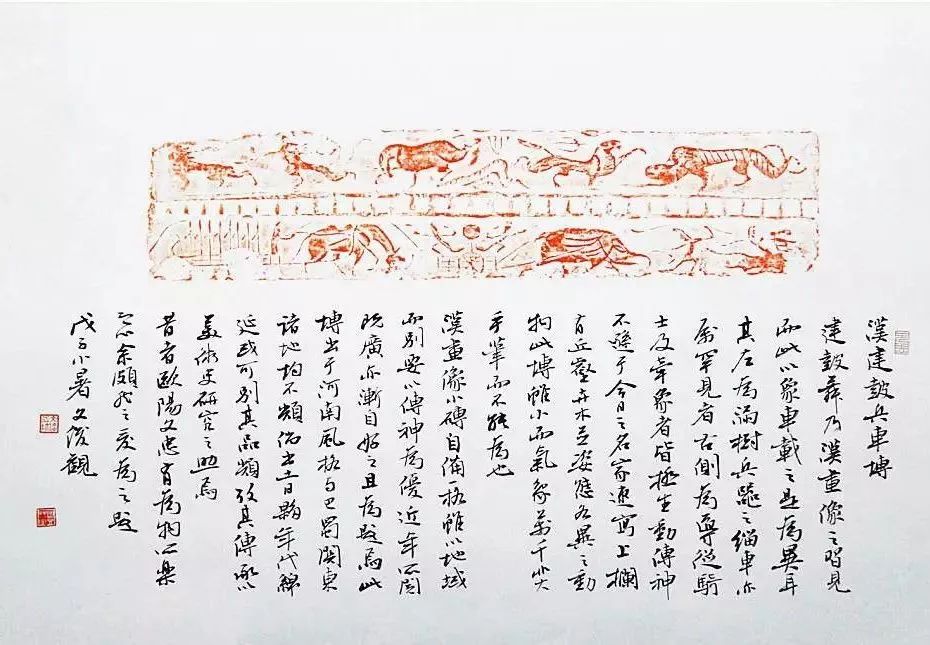 漢建鼓兵車塼
建鼓舞乃漢畫像之習見
而此以象車載之是為異耳
其左為滿樹兵器之輜車亦
屬罕見者右側為導從騎
士及牽象者皆極生動傳神
不遜于今日之名家速寫上欄
有丘壑卉木並姿態各異之動
物此塼雖小而氣象萬千
手輩而不能為也
漢畫像小磚自備一格雖以地域
而別要以傳神為優近年所閱
既廣亦漸自好之且為跋焉此
塼出于河南風格与巴蜀關東
諸地均不類出土日夥年代綿
延或可別其品類考其傳承以
美術史研究之助焉
昔者歐陽文忠有為物所樂
余頗然之爰為之跋
戊子小暑文俊觀